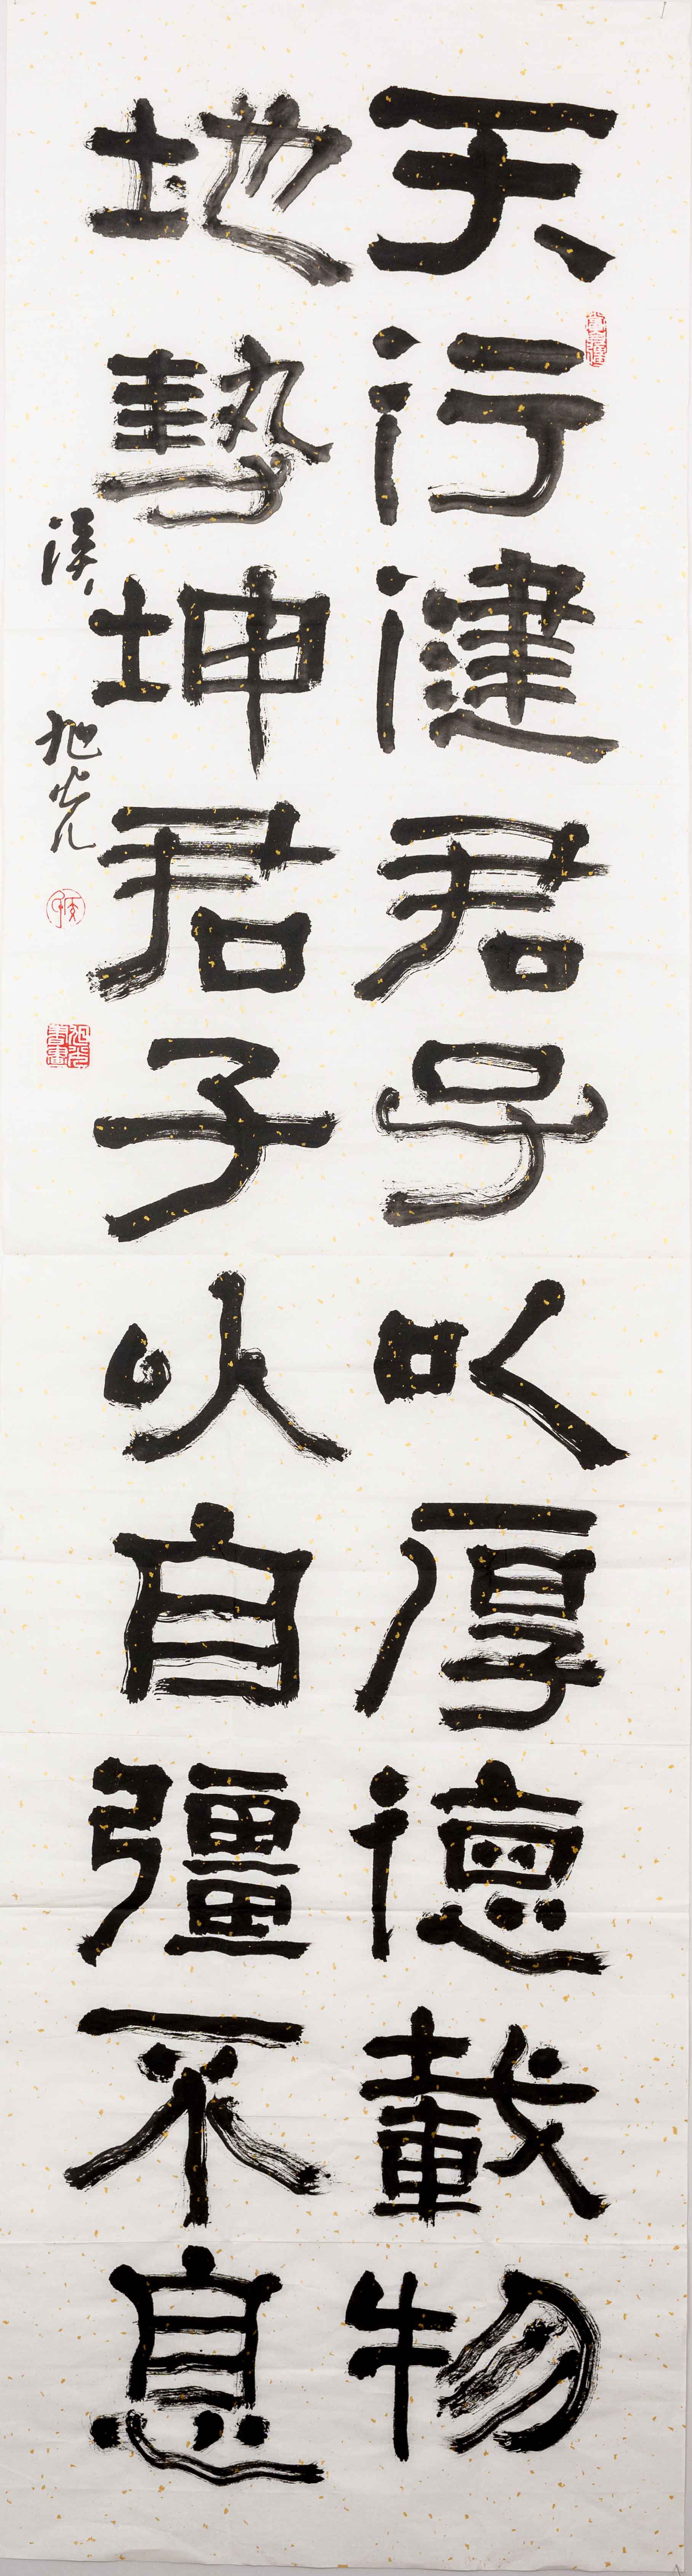 天行健君子以厚德載物
地勢坤君子以自彊不息
旭光